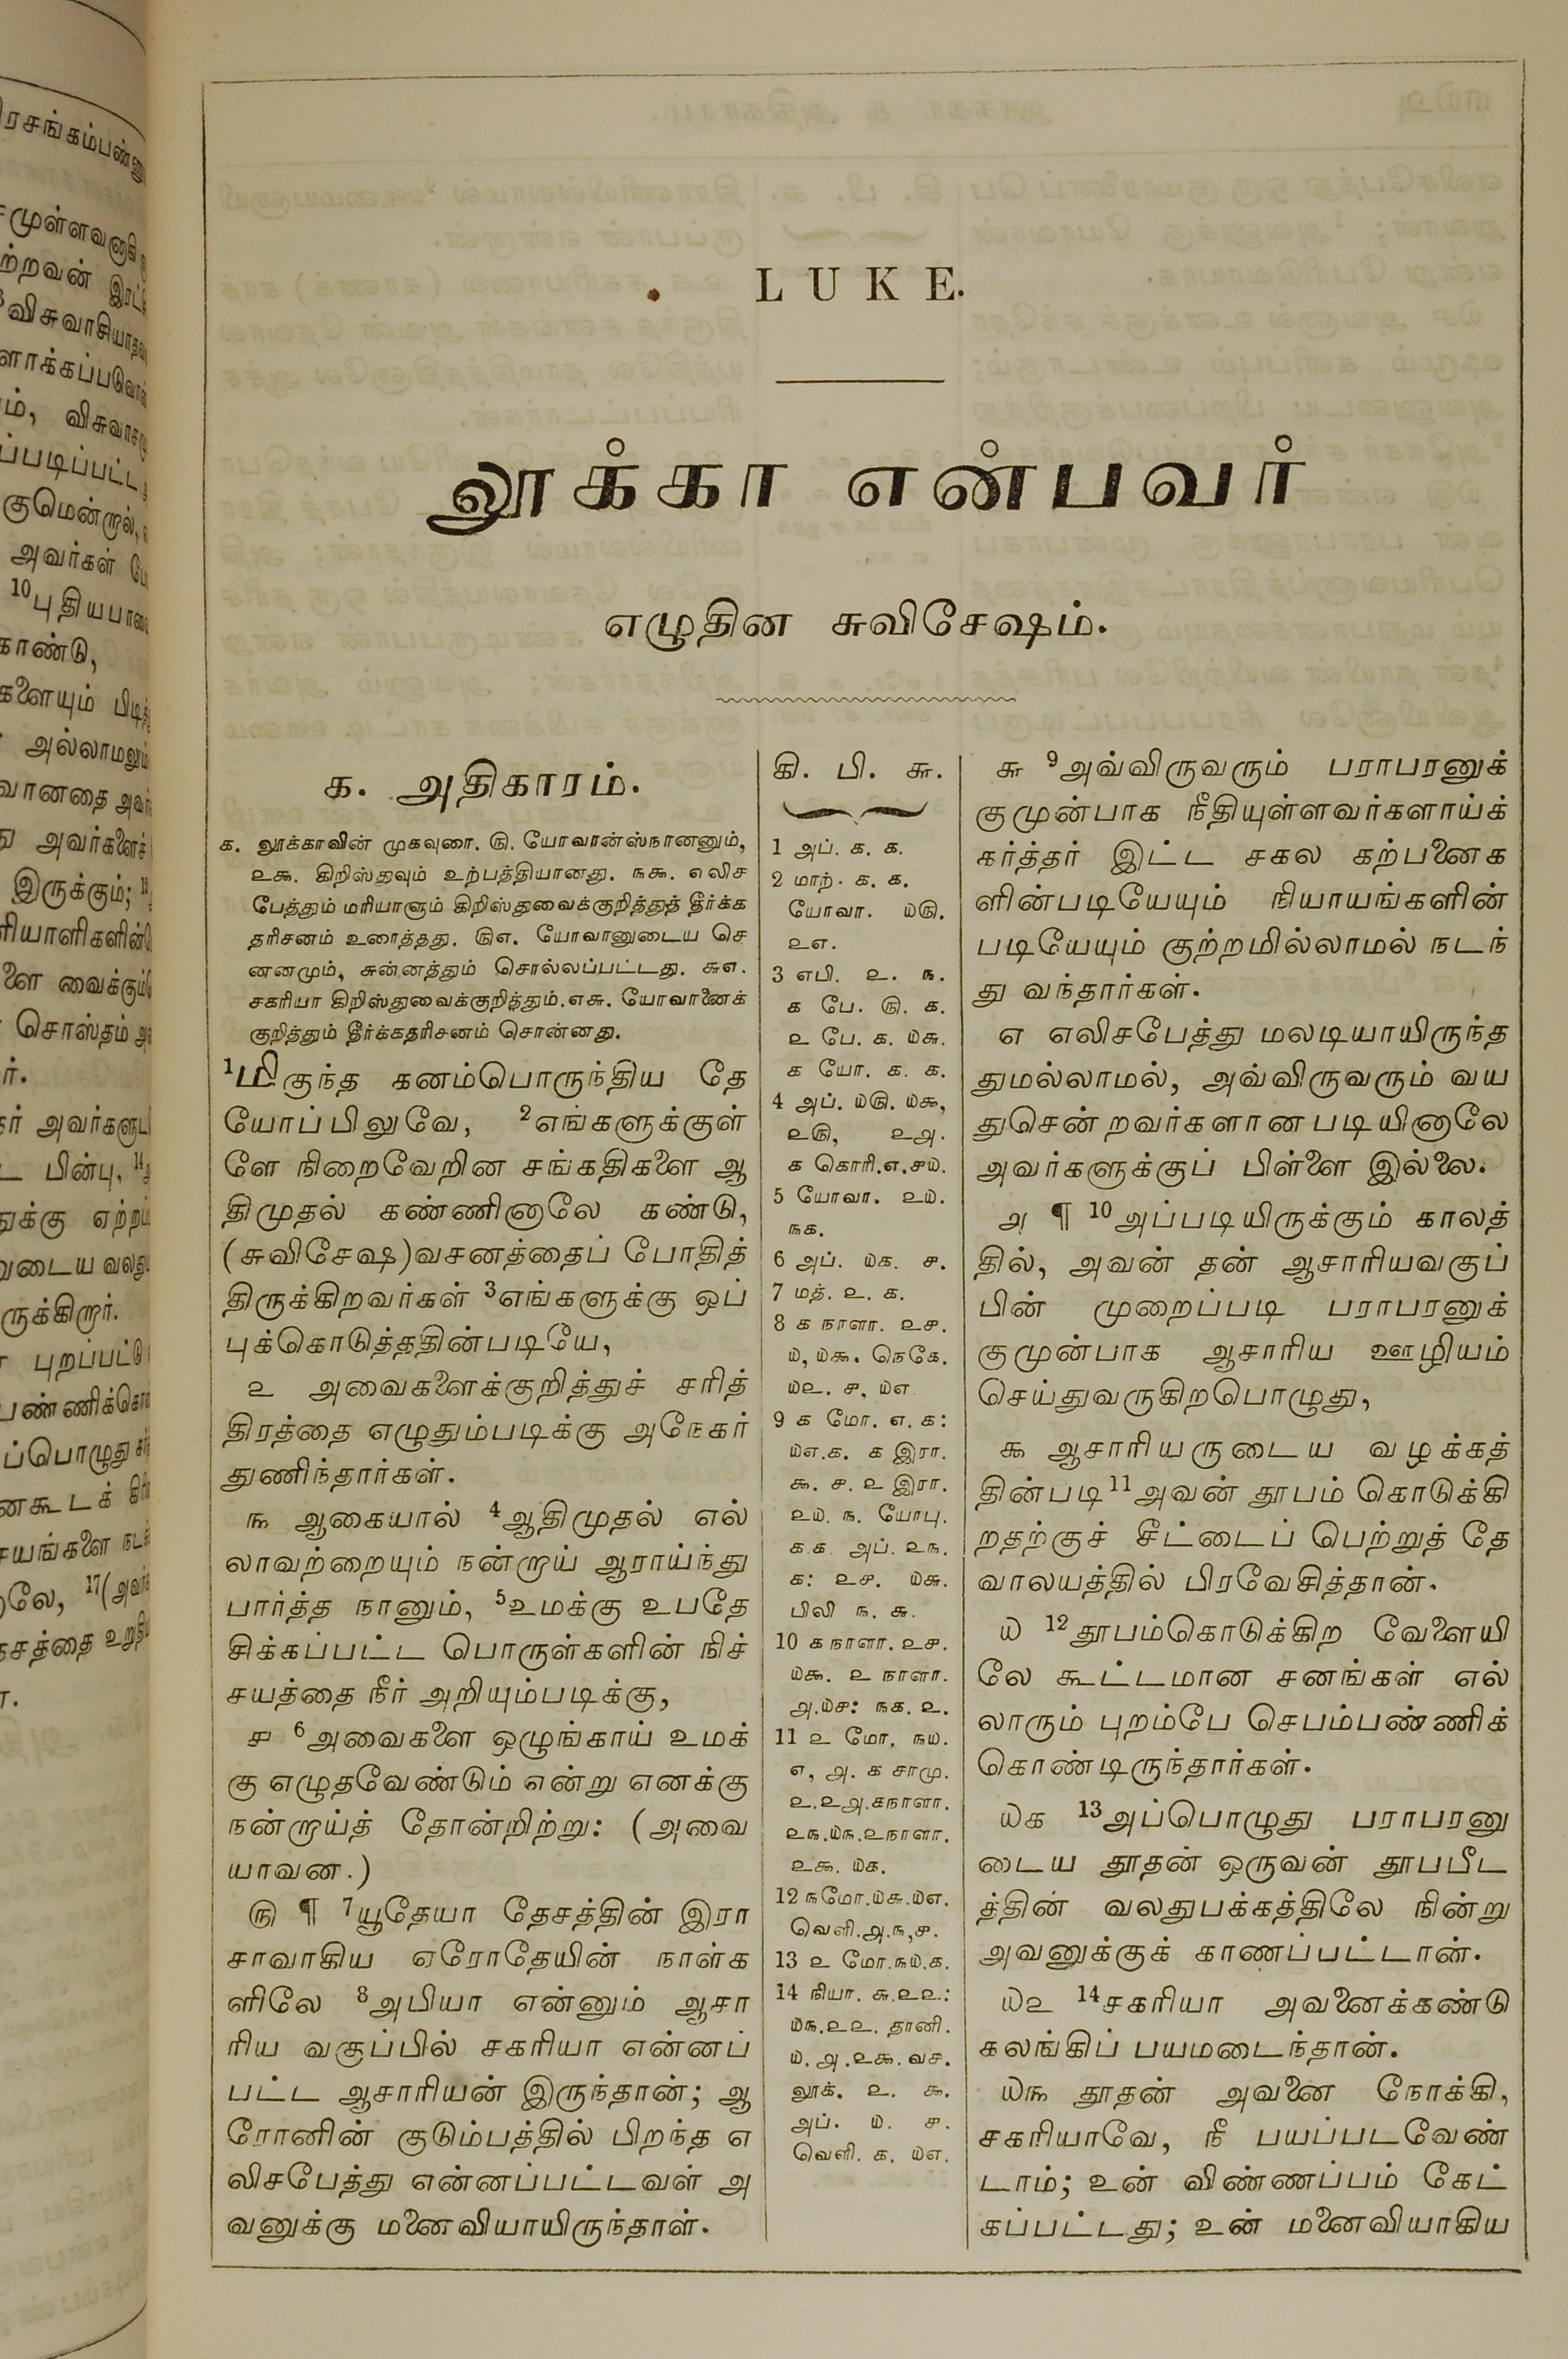 LUKE.
லூக்கா என்பவர்
எழுதின சுவிசேஷம்.
௧. அதிகாரம்.
௧. லூக்காவின் முகவுரை. ௫. யோவான்ஸ்நானனும்,
௨௬. கிறிஸ்துவும் உற்பத்தியானது. ௩௯. எலிச
பேத்தும் மரியாளும் கிறிஸ்துவைக்குறித்துத் தீர்க்க
தரிசனம் உரைத்தது. ௫௭. யோவானுடைய செ
னனமும், சுன்னத்தும் சொல்லப்பட்டது. ௬௭.
சகரியா கிறிஸ்துவைக்குறித்தும். ௭௬. யோவானைக்
குறித்தும் தீர்க்கதரிசனம் சொன்னது.
1மிகுந்த கனம்பொருந்திய தே
யோப்பிலுவே, 2எங்களுக்குள்
ளே நிறைவேறின சங்கதிகளை ஆ
திமுதல் கண்ணினாலே கண்டு,
(சுவிசேஷ)வசனத்தைப் போதித்
திருக்கிறவர்கள் 3எங்களுக்கு ஒப்
புக்கொடுத்ததின்படியே,
௨ அவைகளைக்குறித்துச் சரித்
திரத்தை எழுதும்படிக்கு அநேகர்
துணிந்தார்கள்.
௩ ஆகையால் 4ஆதிமுதல் எல்
லாவற்றையும் நன்றாய் ஆராய்ந்து
பார்த்த நானும், 5உமக்கு உபதே
சிக்கப்பட்ட பொருள்களின் நிச்
சயத்தை நீர் அறியும்படிக்கு,
௪ 6அவைகளை ஒழுங்காய் உமக்
கு எழுதவேண்டும் என்று எனக்கு
நன்றாய்த் தோன்றிற்று: (அவை
யாவன.)
௫ ¶ 7யூதேயா தேசத்தின் இரா
சாவாகிய ஏரோதேயின் நாள்க
ளிலே 8அபியா என்னும் ஆசா
ரிய வகுப்பில் சகரியா என்னப்
பட்ட ஆசாரியன் இருந்தான்; ஆ
ரோனின் குடும்பத்தில் பிறந்த எ
லிசபேத்து என்னப்பட்டவள் அ
வனுக்கு மனைவியாயிருந்தாள்.
கி. பி. ௬.
1 அப். ௧. ௧.
2 மாற். ௧. ௧.
யோவா. ௰௫.
௨௭.
3 எபி. ௨. ௩.
௧ பே. ௫. ௧.
௨ பே. ௧. ௰௬.
௧ யோ. ௧. ௧.
4 அப். ௰௫. ௰௯,
௨௫, ௨௮.
௧ கொரி.௭.௪௰.
5 யோவா. ௨௰.
௩௧.
6 அப். ௰௧. ௪.
7 மத். ௨. ௧.
8 ௧ நாளா. ௨௪.
௰, ௰௯. நெகே.
௰௨. ௪, ௰௭
9 ௧ மோ. ௭. ௧:
௰௭.௧. ௧ இரா.
௯. ௪. ௨ இரா.
௨௰. ௩. யோபு.
௧ ௧. அப். ௨௩.
௧: ௨௪. ௰௬.
பிலி ௩. ௬.
10 ௧ நாளா. ௨௪.
௰௯. ௨ நாளா.
௮.௰௪: ௩௧. ௨.
11 ௨ மோ. ௩௰.
௭, ௮. ௧ சாமு.
௨.௨௮.௧நாளா.
௨௩.௰௩.௨நாளா.
௨௯. ௰௧.
12 ௩மோ.௰௬.௰௭.
வெளி.௮.௩,௪.
13 ௨ மோ.௩௰.௧.
14 நியா. ௬.௨௨:
௰௩.௨௨. தானி.
லூக். ௨. ௯.
அப். ௰. ௪.
வெளி. ௧. ௰௭.
௬ 9அவ்விருவரும் பராபரனுக்
குமுன்பாக நீதியுள்ளவர்களாய்க்
கர்த்தர் இட்ட சகல கற்பனைக
ளின்படியேயும் நியாயங்களின்
படியேயும் குற்றமில்லாமல் நடந்
து வந்தார்கள்.
௭ எலிசபேத்து மலடியாயிருந்த
துமல்லாமல், அவ்விருவரும் வய
துசென்றவர்களானபடியினாலே
அவர்களுக்குப் பிள்ளை இல்லை.
௮ ¶ 10அப்படியிருக்கும் காலத்
தில், அவன் தன் ஆசாரியவகுப்
பின் முறைப்படி பராபரனுக்
குமுன்பாக ஆசாரிய ஊழியம்
செய்துவருகிறபொழுது,
௯ ஆசாரியருடைய வழக்கத்
தின்படி 11அவன் தூபம் கொடுக்கி
றதற்குச் சீட்டைப் பெற்றுத் தே
வாலயத்தில் பிரவேசித்தான்.
௰ 12தூபம்கொடுக்கிற வேளையி
லே கூட்டமான சனங்கள் எல்
லாரும் புறம்பே செபம்பண்ணிக்
கொண்டிருந்தார்கள்.
௰௧ 13அப்பொழுது பராபரனு
டைய தூதன் ஒருவன் தூபபீட
த்தின் வலதுபக்கத்திலே நின்று
அவனுக்குக் காணப்பட்டான்.
௰௨ 14சகரியா அவனைக்கண்டு
கலங்கிப் பயமடைந்தான்.
௰௩ தூதன் அவனை நோக்கி,
சகரியாவே, நீ பயப்படவேண்
டாம்; உன் விண்ணப்பம் கேட்
கப்பட்டது; உன் மனைவியாகிய